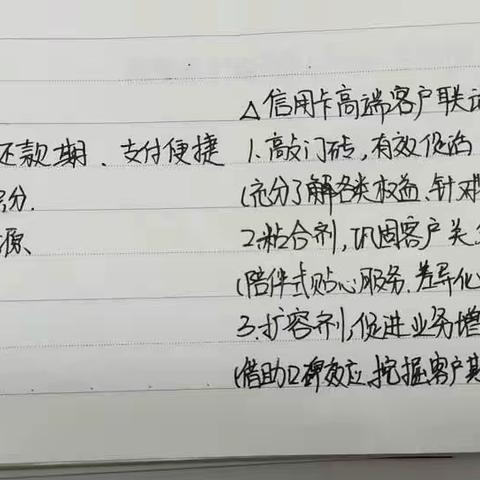 还款期、支付便捷
分.
源、
△信用卡高端客户联动
1.敲门砖,有效促活
(充分了解各类权益,针对
2.粘合剂,巩固客户关
(陪伴式贴心服务、差异化
3.扩容剂,促进业务增
(借助口碑效应,挖掘客户其